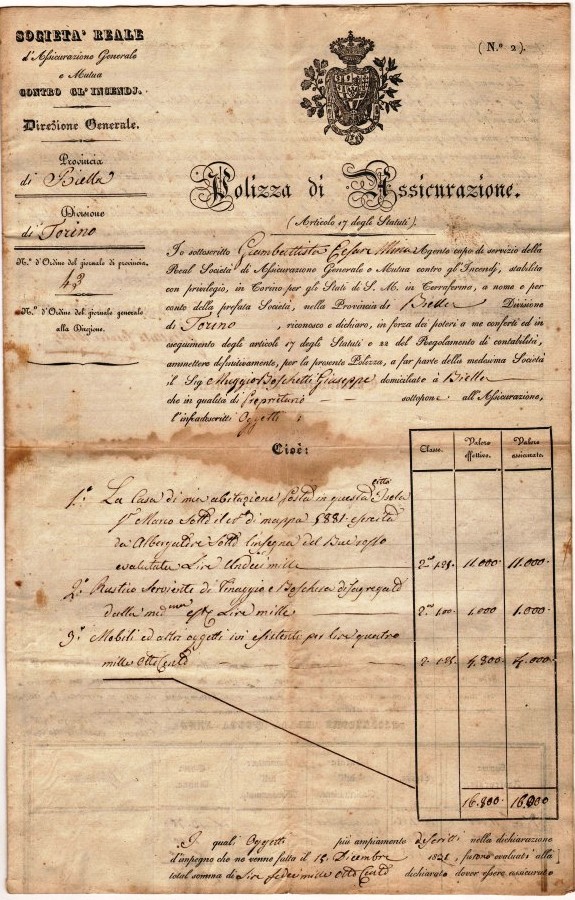 SOCIETA' REALE
d'Assicurazione Generale
e Mutua
CONTRO GL'INCENDJ.
Direzione Generale.
Provincia
di Biella
Divisione
di Torino
N.° d'Ordine del giornale di provincia.
43
N.° d'Ordine del giornale generale
alla Direzione.
(N.° 2).
Polizza di Assicurazione.
(Articolo 17 degli Statuti).
Io sottoscritto Giambattista Cesare Agente capo di servizio della
Real Società di Assicurazione Generale e Mutua contro gl'Incendj, stabilita
con privilegio, in Torino per gli Stati di S. M. in Terraferma, a nome e per
conto della prefata Società, nella Provincia di Biella Divisione
di Torino, riconosco e dichiaro, in forza dei poteri a me conferti ed in
eseguimento degli articoli 17 degli Statuti e 22 del Regolamento di contabilità,
ammettere definitivamente, per la presente Polizza, a far parte della medesima Società
il Sig. Boschetti Giuseppe domiciliato a Biella
che in qualità di Proprietario sottopone all'Assicurazione,
l'infradescritti Oggetti:
Cioè:
Classe. Valore effettivo. Valore assicurato.
1.° La Casa di mia abitazione posta in questa città Isola
S. Marco sotto il n.° di mappa 5881
da Albergatore sotto l'insegna del Bue rosso
valutata Lire Undeci mille 11.000 11.000
2.° Rustico serviente di
dalla Lire mille 1.000 1.000
3.° Mobili ed altri oggetti ivi esistenti per lire quattro
mille otto Cento 4.800
16.800
I quali Oggetti più ampiamente descritti nella dichiarazione
d'impegno che ne venne fatta il 15 Dicembre , furono valuati alla
total somma di Lire sedeci mille otto Cento dichiarato dover essere assicurato